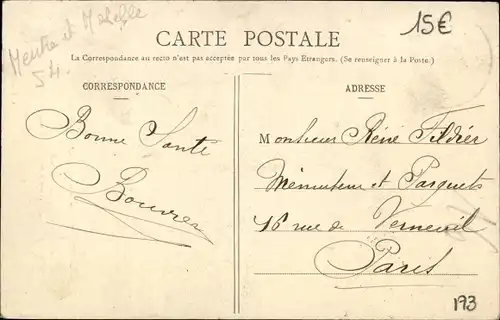 Meurthe et Moselle
54.
15€
CARTE POSTALE
La Correspondance au recto n'est pas acceptée par tous les Pays Etrangers. (Se renseigner à la Poste.)
CORRESPONDANCE
Bonne Santé
ADRESSE
Monsieur René
et Parquets
16 rue de Verneuil
Paris
193